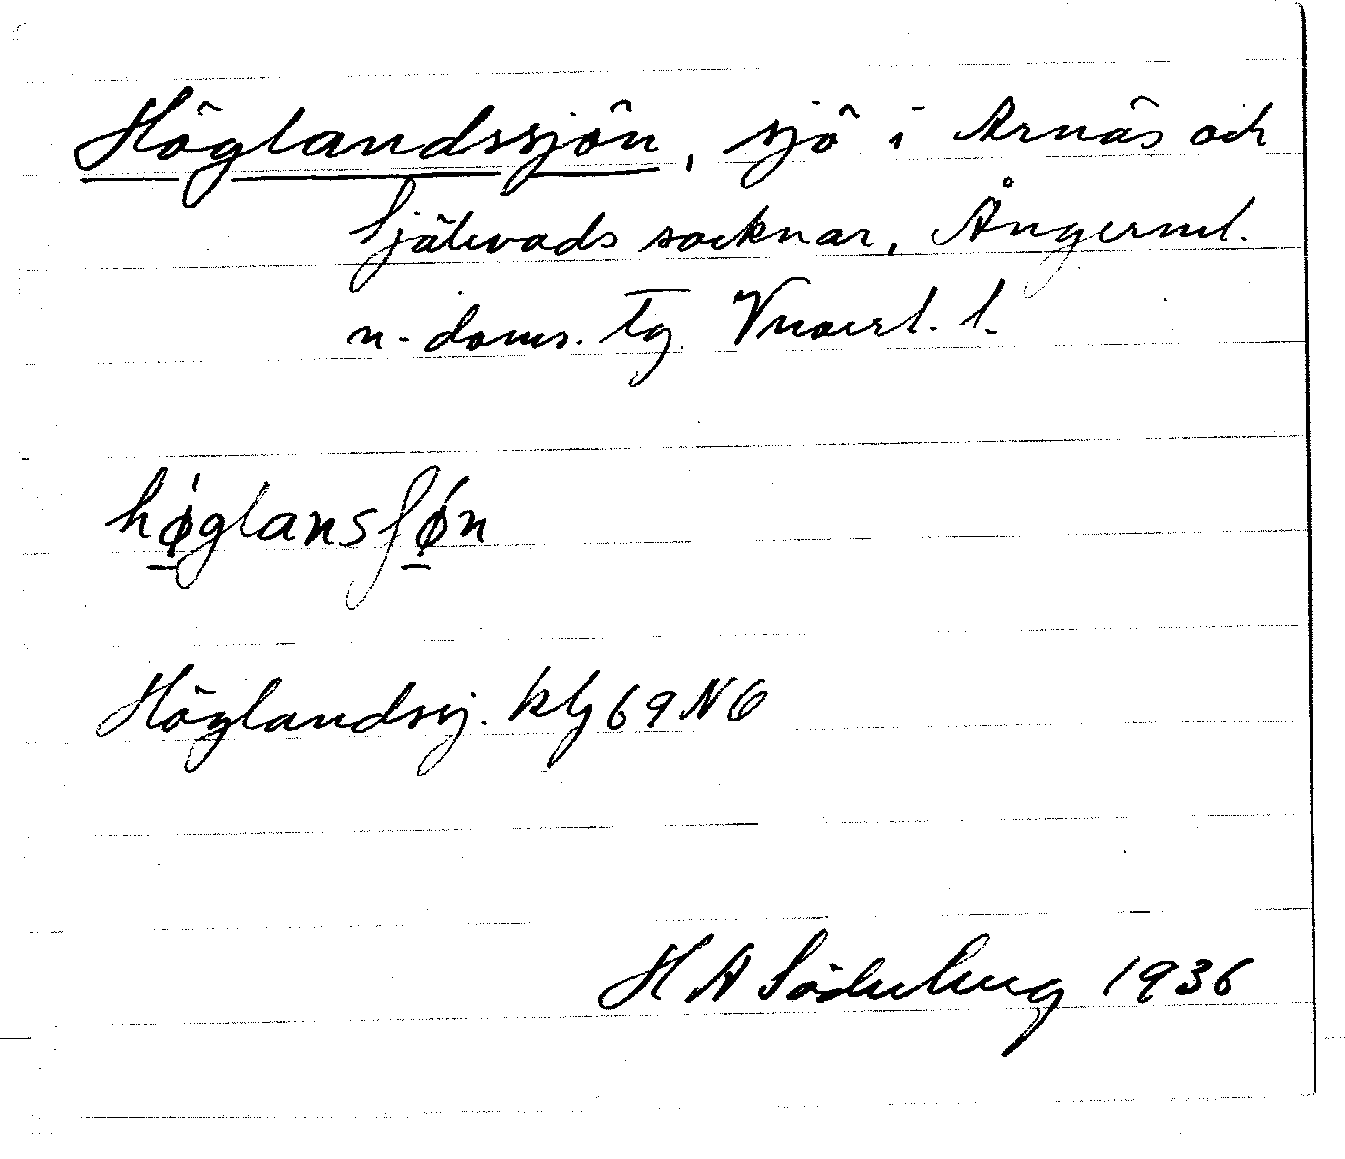 Höglandssjön, sjö i Arnäs och
Själevads socknar, Ångerml.
n. doms. Tg. l.
høglansʃøn
Höglandssj. kbg 69 NO
H A Söderberg 1936